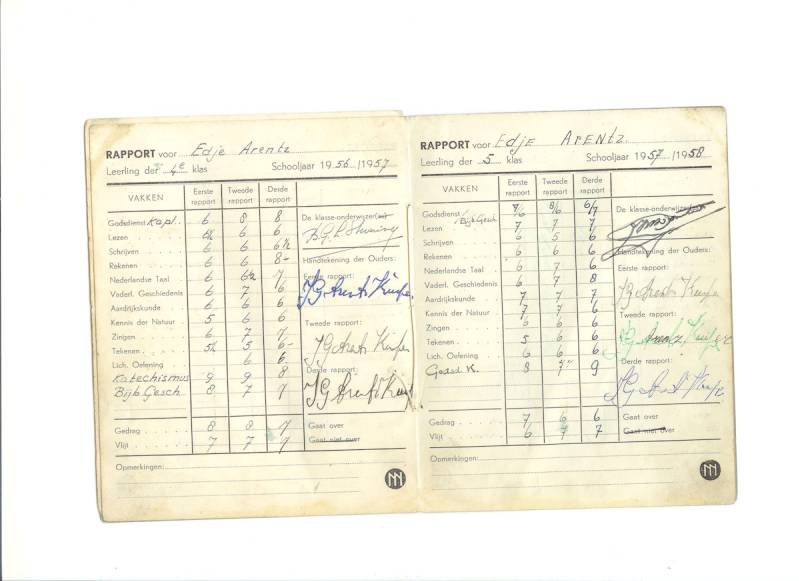 RAPPORT voor Edje Arentz
Leerling der 4e klas Schooljaar 1956/1957
VAKKEN Eerste rapport Tweede rapport Derde rapport
Godsdienst Kapl. 6 8 8 De klasse-onderwijzer(es)
Lezen 6½ 6 6
Schrijven 6 6 6½
Rekenen 6 6 8- Handtekening der Ouders:
Nederlandse Taal 6 6½ 7 Eerste rapport:
Vaderl. Geschiedenis 6 7 6
Aardrijkskunde 6 6 6
Kennis der Natuur 5 6 6 Tweede rapport:
Zingen 6 7 7
Tekenen 5½ 5 6-
Lich. Oefening 6 6
Katechismus 9 9 8 Derde rapport:
Bijb. Gesch 8 7 7
Gedrag 8 8 7 Gaat over
Vlijt 7 7 7 Gaat niet over
Opmerkingen:
RAPPORT voor Edje Arentz.
Leerling der 5 klas Schooljaar 1957/1958
VAKKEN Eerste rapport Tweede rapport Derde rapport
Godsdienst/Bijb. Gesch. 7/6 8/6 6/7 De klasse-onderwijzer(es)
Lezen 7 7 7
Schrijven 6 5 6
Rekenen 6 6 6 Handtekening der Ouders:
Nederlandse Taal 6 7 6 Eerste rapport:
Vaderl. Geschiedenis 6 7 8
Aardrijkskunde 7 7 7
Kennis der Natuur 7 7 6 Tweede rapport:
Zingen 6 6 6
Tekenen 5 6 6
Lich. Oefening 6 6 6 Derde rapport:
Godsd. K. 8 7 9
Gedrag 7 6 6 Gaat over
Vlijt 6 7 7 Gaat niet over
Opmerkingen: